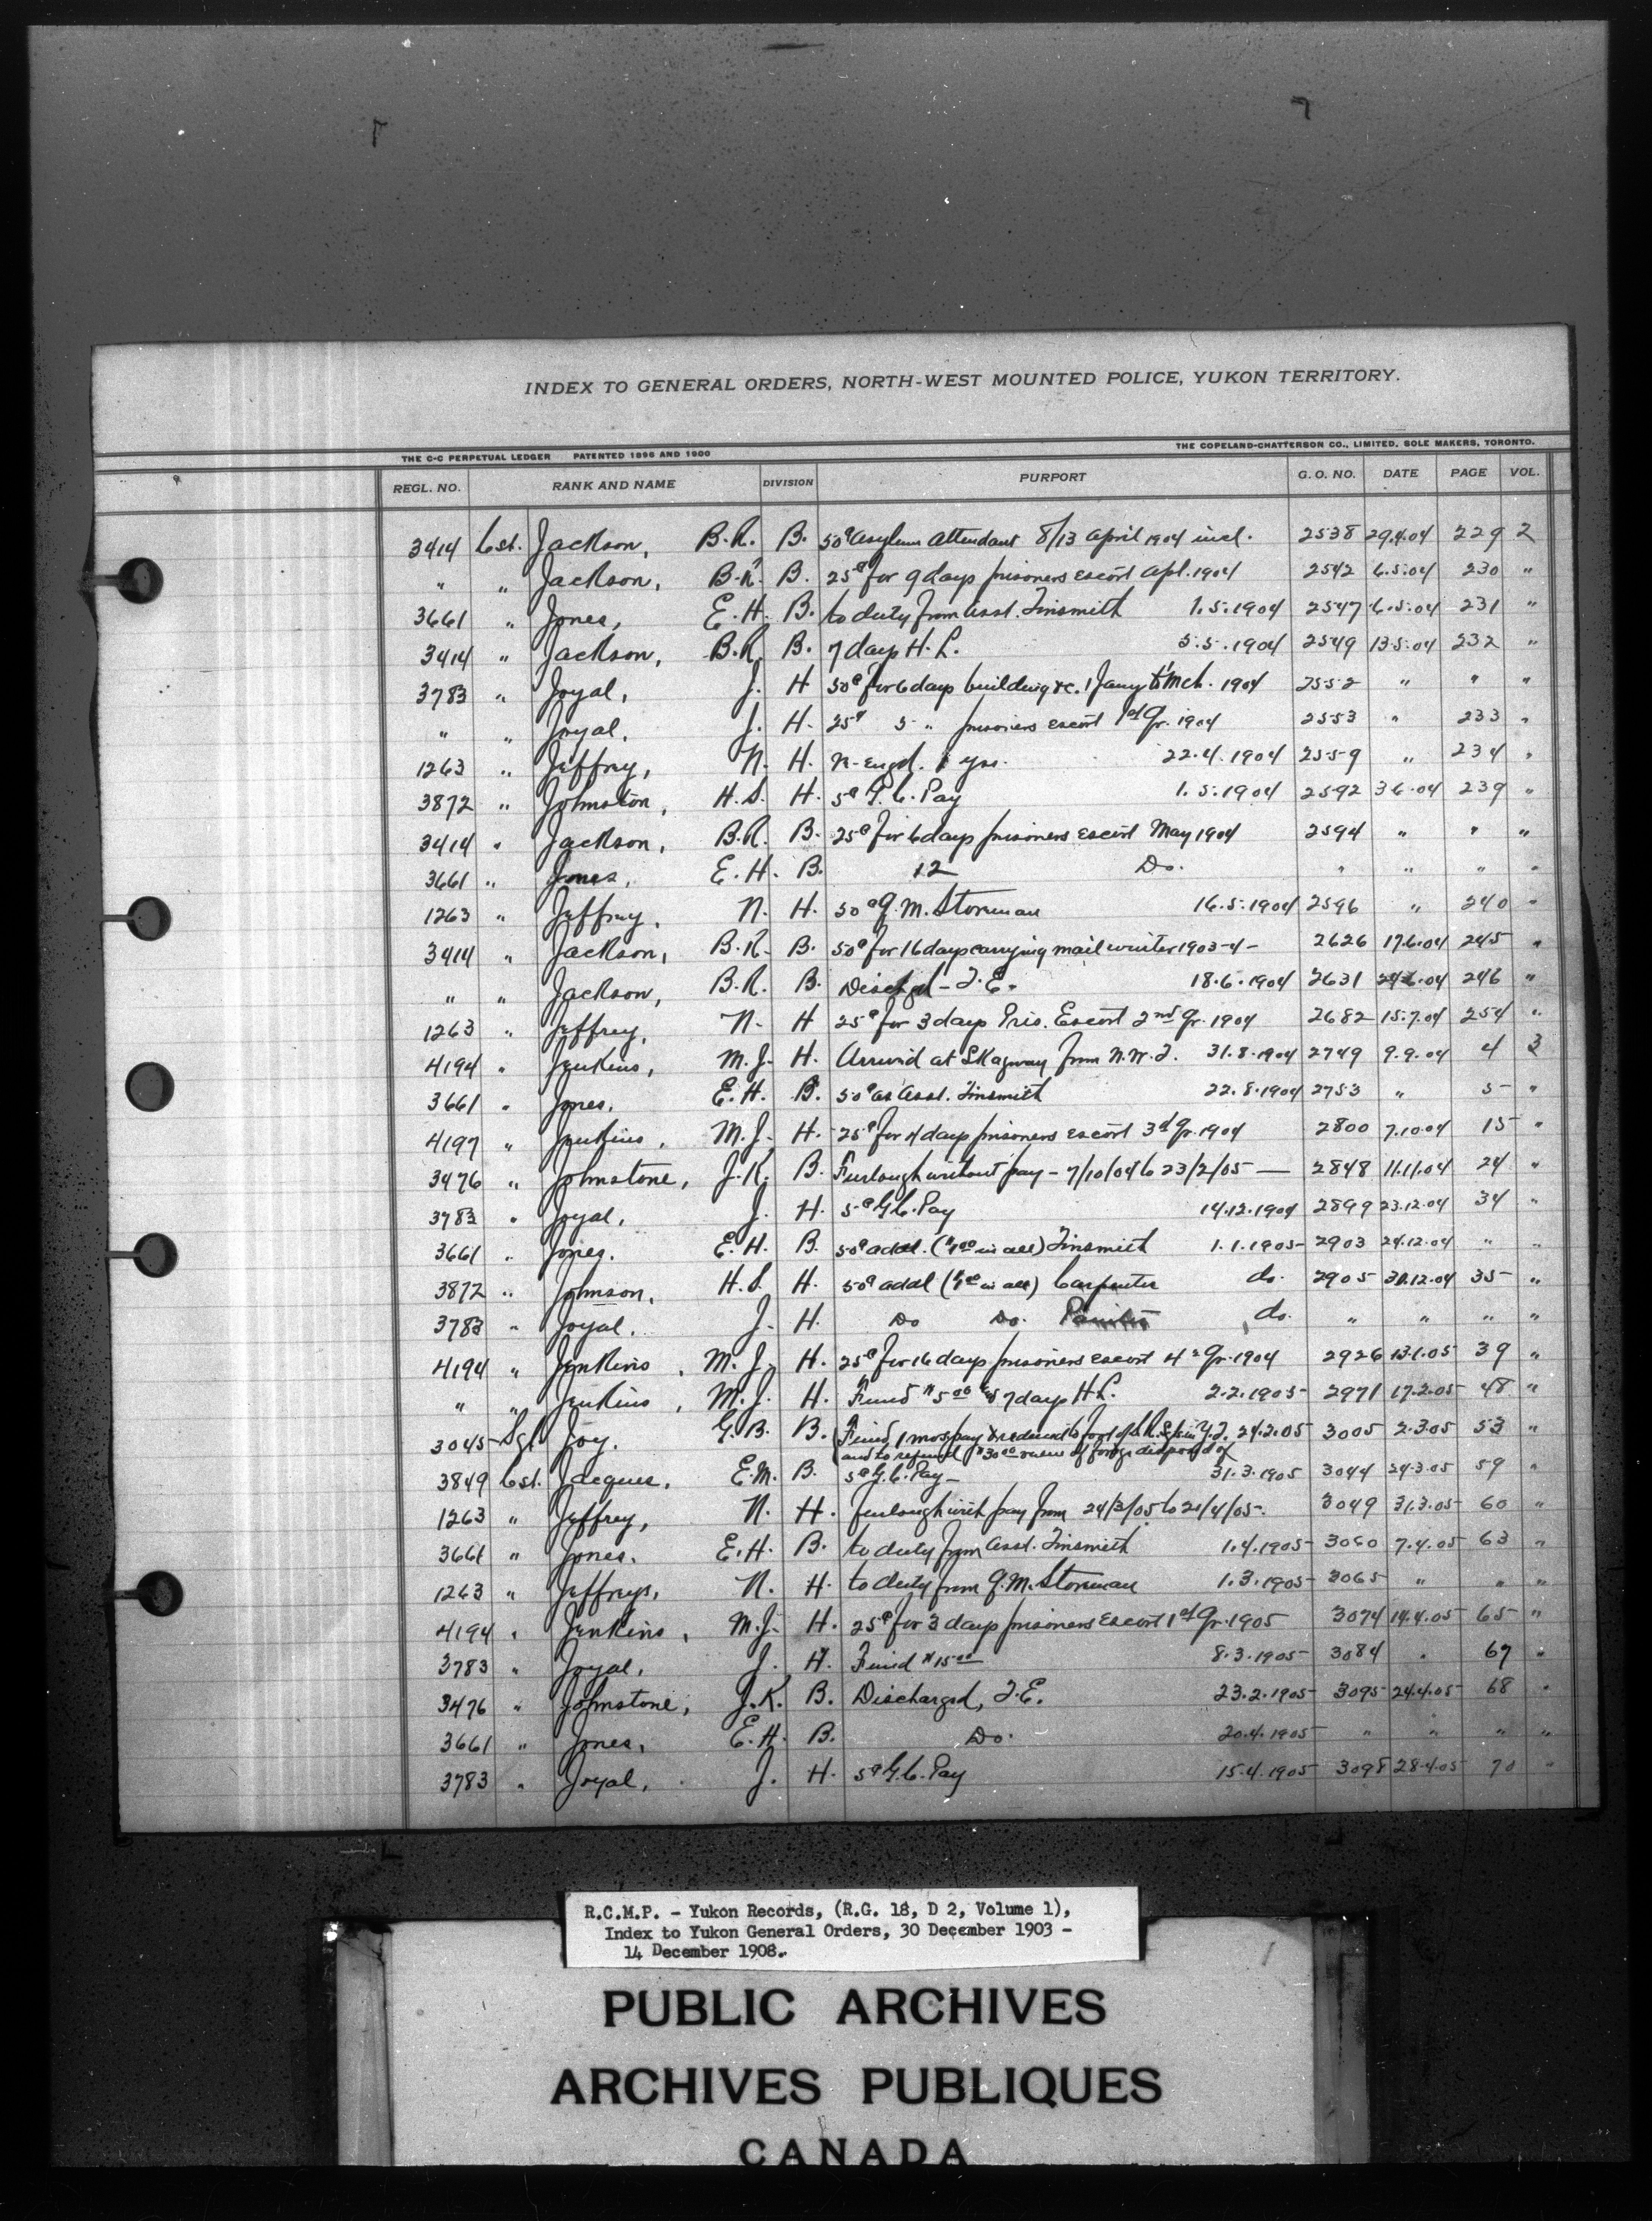 INDEX TO GENERAL ORDERS, NORTH-WEST MOUNTED POLICE, YUKON TERRITORY.
THE C-C PERPETUAL LEDGER PATENTED 1896 AND 1900 THE COPELAND-CHATTERSON CO., LIMITED, SOLE MAKERS, TORONTO.
REGL. NO. RANK AND NAME DIVISION PURPORT G. O. NO. DATE PAGE VOL.
3414 Cst. Jackson, B.R. B. 50¢ Asylum Attendant 8/13 April 1904 incl. 2538 29.4.04 229 2
" " Jackson, B.R. B. 25¢ for 9 days prisoners escort Apl. 1904 2542 6.5.04 230 "
3661 " Jones, E.H. B. to duty from asst. Tinsmith 1.5.1904 2547 6.5.04 231 "
3414 " Jackson, B.R. B. 7 days H.L. 5.5.1904 2549 13.5.04 232 "
3783 " Joyal, J. H 50¢ for 6 days building &c. 1 Jany to Mch. 1904 2552 " " "
" " Joyal, J. H. 25¢ 5 " prisoners escort 1st Qr. 1904 2553 " 233 "
1263 " Jeffrey, N. H. R-engd. 1 yr. 22.4.1904 2559 " 234 "
3872 " Johnston, H.S. H. 5¢ G.C. Pay 1.5.1904 2592 3.6.04 239 "
3414 " Jackson, B.R. B. 25¢ for 6 days prisoners escort May 1904 2594 " " "
3661 " Jones, E.H. B. 12 Do. " " " "
1263 " Jeffrey, N. H. 50¢ Q.M. Storeman 16.5.1904 2596 " 240 "
3414 " Jackson, B.R. B. 50¢ for 16 days carrying mail winter 1903-4- 2626 17.6.04 245 "
" " Jackson, B.R. B. Dischgd - T.E. 18.6.1904 2631 24.6.04 246 "
1263 " Jeffrey, N. H 25¢ for 3 days Pris. Escort 2nd Qr. 1904 2682 15.7.04 254 "
4194 " Jenkins, M.J. H. Arrived at Skagway from N.W.T. 31.8.1904 2749 9.9.04 4 3
3661 " Jones, E.H. B. 50¢ as Asst. Tinsmith 22.8.1904 2753 " 5 "
4197 " Jenkins, M.J. H. 25¢ for 4 days prisoners escort 3d Qr. 1904 2800 7.10.04 15 "
3476 " Johnstone, J.K. B. Furlough without pay - 7/10/04 to 23/2/05 — 2848 11.11.04 24 "
3783 " Joyal, J. H. 5¢ G.C. Pay 14.12.1904 2899 23.12.04 34 "
3661 " Jones, E.H. B. 50¢ addl. ($1.00 in all) Tinsmith 1.1.1905 2903 24.12.04 " "
3872 " Johnson, H.S. H. 50¢ addl ($1.00 in all) Carpenter do. 2905 30.12.04 35 "
3783 " Joyal, J. H. Do Do. do. " " " "
4194 " Jenkins, M.J. H. 25¢ for 16 days prisoners escort 4th Qr. 1904 2926 13.1.05 39 "
" " Jenkins, M.J. H. Fined $5.00 & 7 days H.L. 2.2.1905 2971 17.2.05 48 "
3045 Sgt Joy, G.B. B. Fined 1 mos pay & reduced to foot of Sgts in Y.T. 24.2.05 3005 2.3.05 53 "
and to refund $30.00 value of forage disposed of
3849 Cst. Jacques, E.M. B. 5¢ G.C. Pay - 31.3.1905 3044 24.3.05 59 "
1263 " Jeffrey, N. H. furlough with pay from 24/3/05 to 21/4/05. 3049 31.3.05 60 "
3661 " Jones, E.H. B. to duty from Asst. Tinsmith 1.4.1905 3060 7.4.05 63 "
1263 " Jeffreys, N. H. to duty from Q.M. Storeman 1.3.1905 3065 " " "
4194 " Jenkins, M.J. H. 25¢ for 3 days prisoners escort 1st Qr. 1905 3074 14.4.05 65 "
3783 " Joyal, J. H. Fined $15.00 8.3.1905 3084 " 67 "
3476 " Johnstone, J.K. B. Discharged, T.E. 23.2.1905 3095 24.4.05 68 "
3661 " Jones, E.H. B. Do. 20.4.1905 " " " "
3783 " Joyal, J. H. 5¢ G.C. Pay 15.4.1905 3098 28.4.05 70 "
R.C.M.P. - Yukon Records, (R.G. 18, D 2, Volume 1),
Index to Yukon General Orders, 30 December 1903 -
14 December 1908.
PUBLIC ARCHIVES
ARCHIVES PUBLIQUES
CANADA